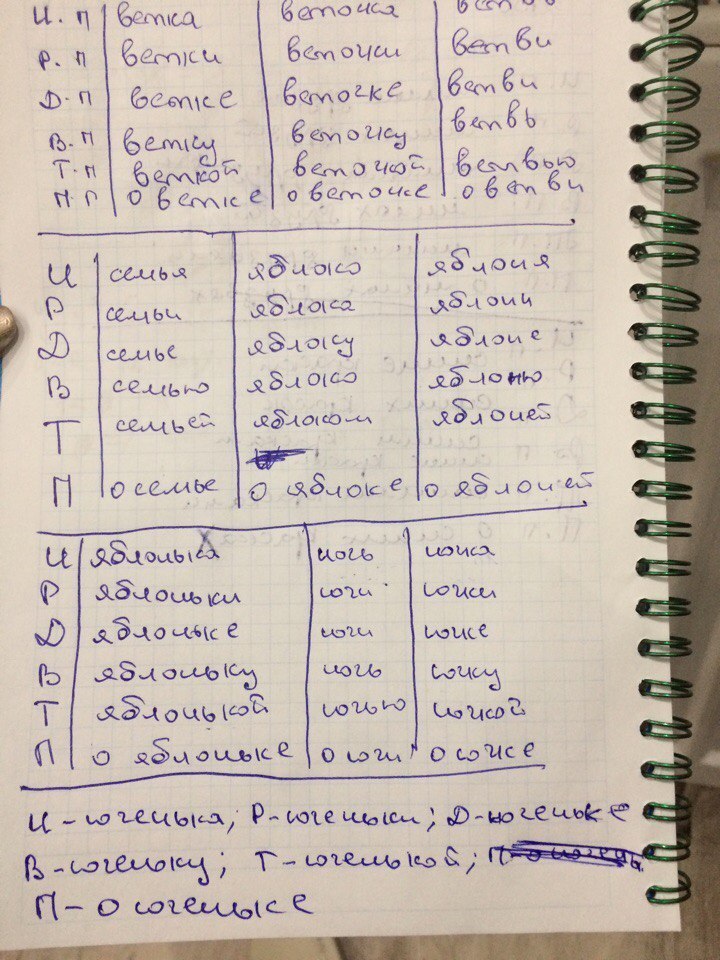 И. п ветка веточка ветвь
Р. п ветки веточки ветви
Д. п ветке веточке ветви
В. п ветку веточку ветвь
Т. п веткой веточкой ветвью
П. п о ветке о веточке о ветви
И семья яблоко яблоня
Р семьи яблока яблони
Д семье яблоку яблоне
В семью яблоко яблоню
Т семьей яблоком яблоней
П о семье о яблоке о яблоней
И яблонька ночь ночка
Р яблоньки ночи ночки
Д яблоньке ночи ночке
В яблоньку ночь ночку
Т яблонькой ночью ночкой
П о яблоньке о ночи о ночке
И - ноченька; Р - ноченьки; Д - ноченьке
В - ноченьку; Т - ноченькой;
П - о ноченьке